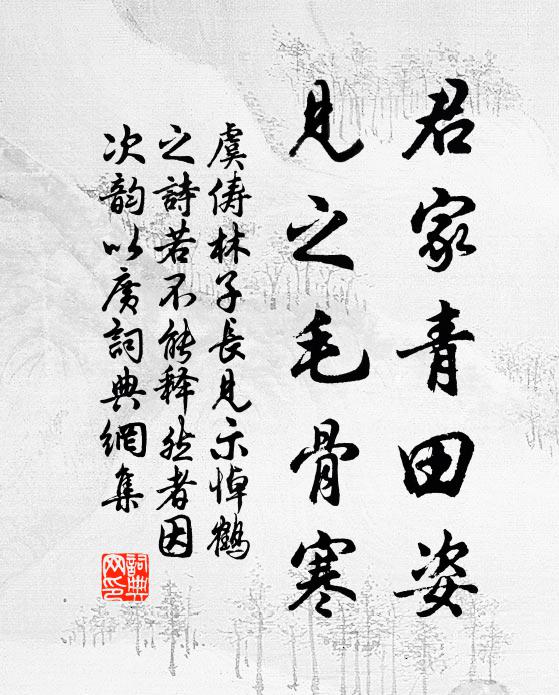 君家青田姿
見之毛骨寒
虞俦林子長見示悼鶴
之詩若不能释然者因
次韵以廣詞典網集
詞典
网印